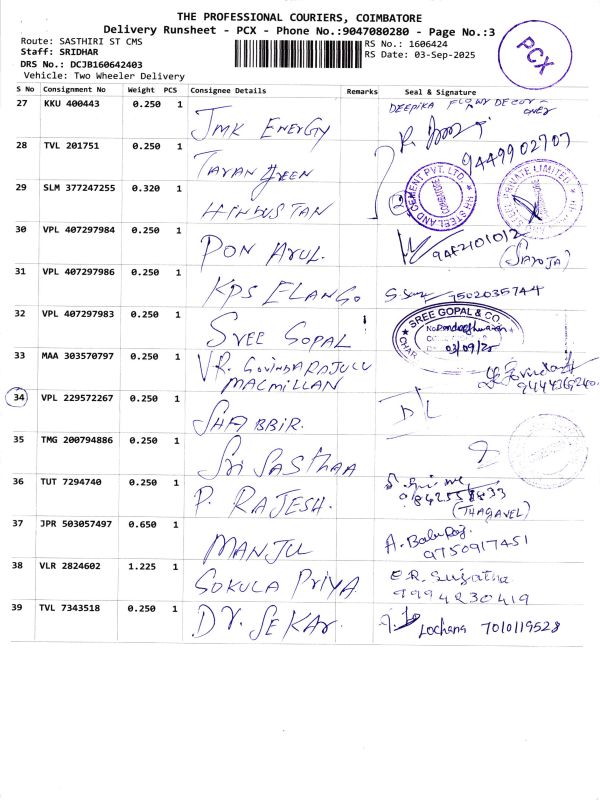 THE PROFESSIONAL COURIERS, COIMBATORE
Delivery Runsheet - PCX - Phone No.:9047080280 - Page No.:3
Route: SASTHIRI ST CMS
RS No.: 1606424
Staff: SRIDHAR
RS Date: 03-Sep-2025
DRS No.: DCJB160642403
Vehicle: Two Wheeler Delivery
PCX
S No Consignment No Weight PCS Consignee Details Remarks Seal & Signature
27 KKU 400443 0.250 1 JMK ENERGY
DEEPIKA
28 TVL 201751 0.250 1 TARAN GREEN
9449902707
29 SLM 377247255 0.320 1 HINDUSTAN
30 VPL 407297984 0.250 1 PON ARUL.
9442101012
(SAROJA)
31 VPL 407297986 0.250 1 KPS ELANGO
7502035744
32 VPL 407297983 0.250 1 SREE GOPAL
SREE GOPAL & CO
03/09/25
33 MAA 303570797 0.250 1 V.R. GOVINDARAJULU
MACMILLAN
34 VPL 229572267 0.250 1 SHABBIR.
D/L
35 TMG 200794886 0.250 1 Sri SASTHAA
36 TUT 7294740 0.250 1 P. RAJESH.
(THAGAVEL)
37 JPR 503057497 0.650 1 MANJU
A. Babu Raj
9750917451
38 VLR 2824602 1.225 1 SOKULA PriYA
E.R. Sujatha
9994230419
39 TVL 7343518 0.250 1 DR. SEKAR.
Lochana 7010119528